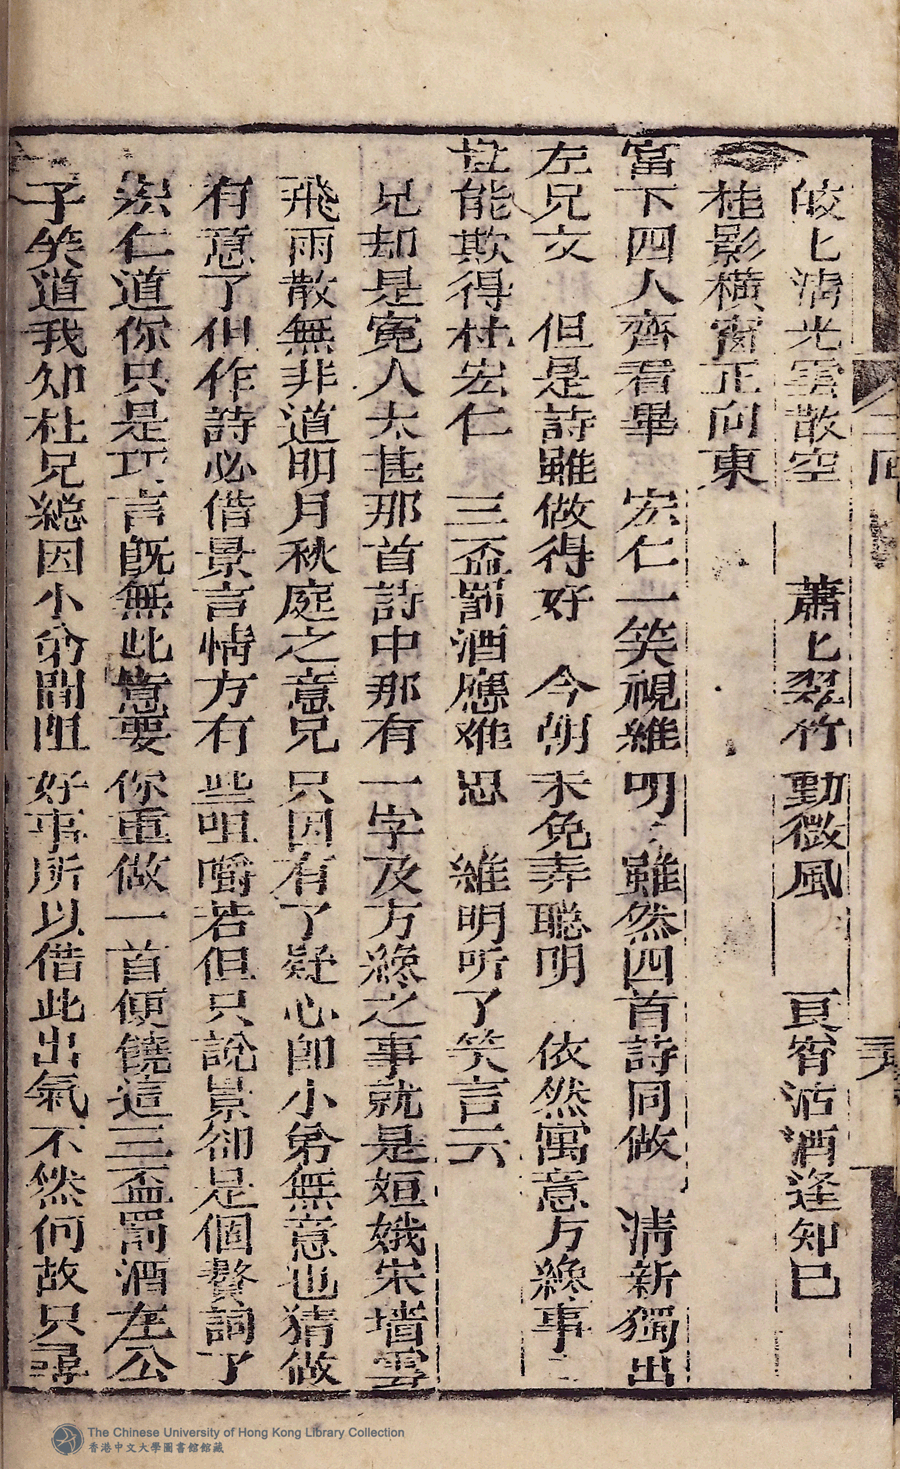 皎〻清光雲散空　蕭〻翠竹動微風　良宵沽酒逢知已
桂影橫窗正向東
當下四人齊看畢　宏仁一笑視維明　雖然四首詩同做　清新獨出
左兄文　但是詩雖做得好　今朝未免弄聰明　依然寓意方絲事
豈能欺得杜宏仁　三盃罰酒應难思　維明听了笑言云
兄却是寃人太甚那首詩中那有一字及方絲之事就是姮娥宋墻雲
飛雨散無非道明月秋庭之意兄只因有了疑心卽小弟無意也猜做
有意了但作詩必借景言情方有些咀嚼若但只說景卻是個贅詞了
宏仁道你只是巧言旣無此意要你重做一首便饒這三盃罰酒左公
子笑道我知杜兄總因小弟間阻好事所以借此出氣不然何故只尋
二回
The Chinese University of Hong Kong Library Collection
香港中文大學圖書館館藏